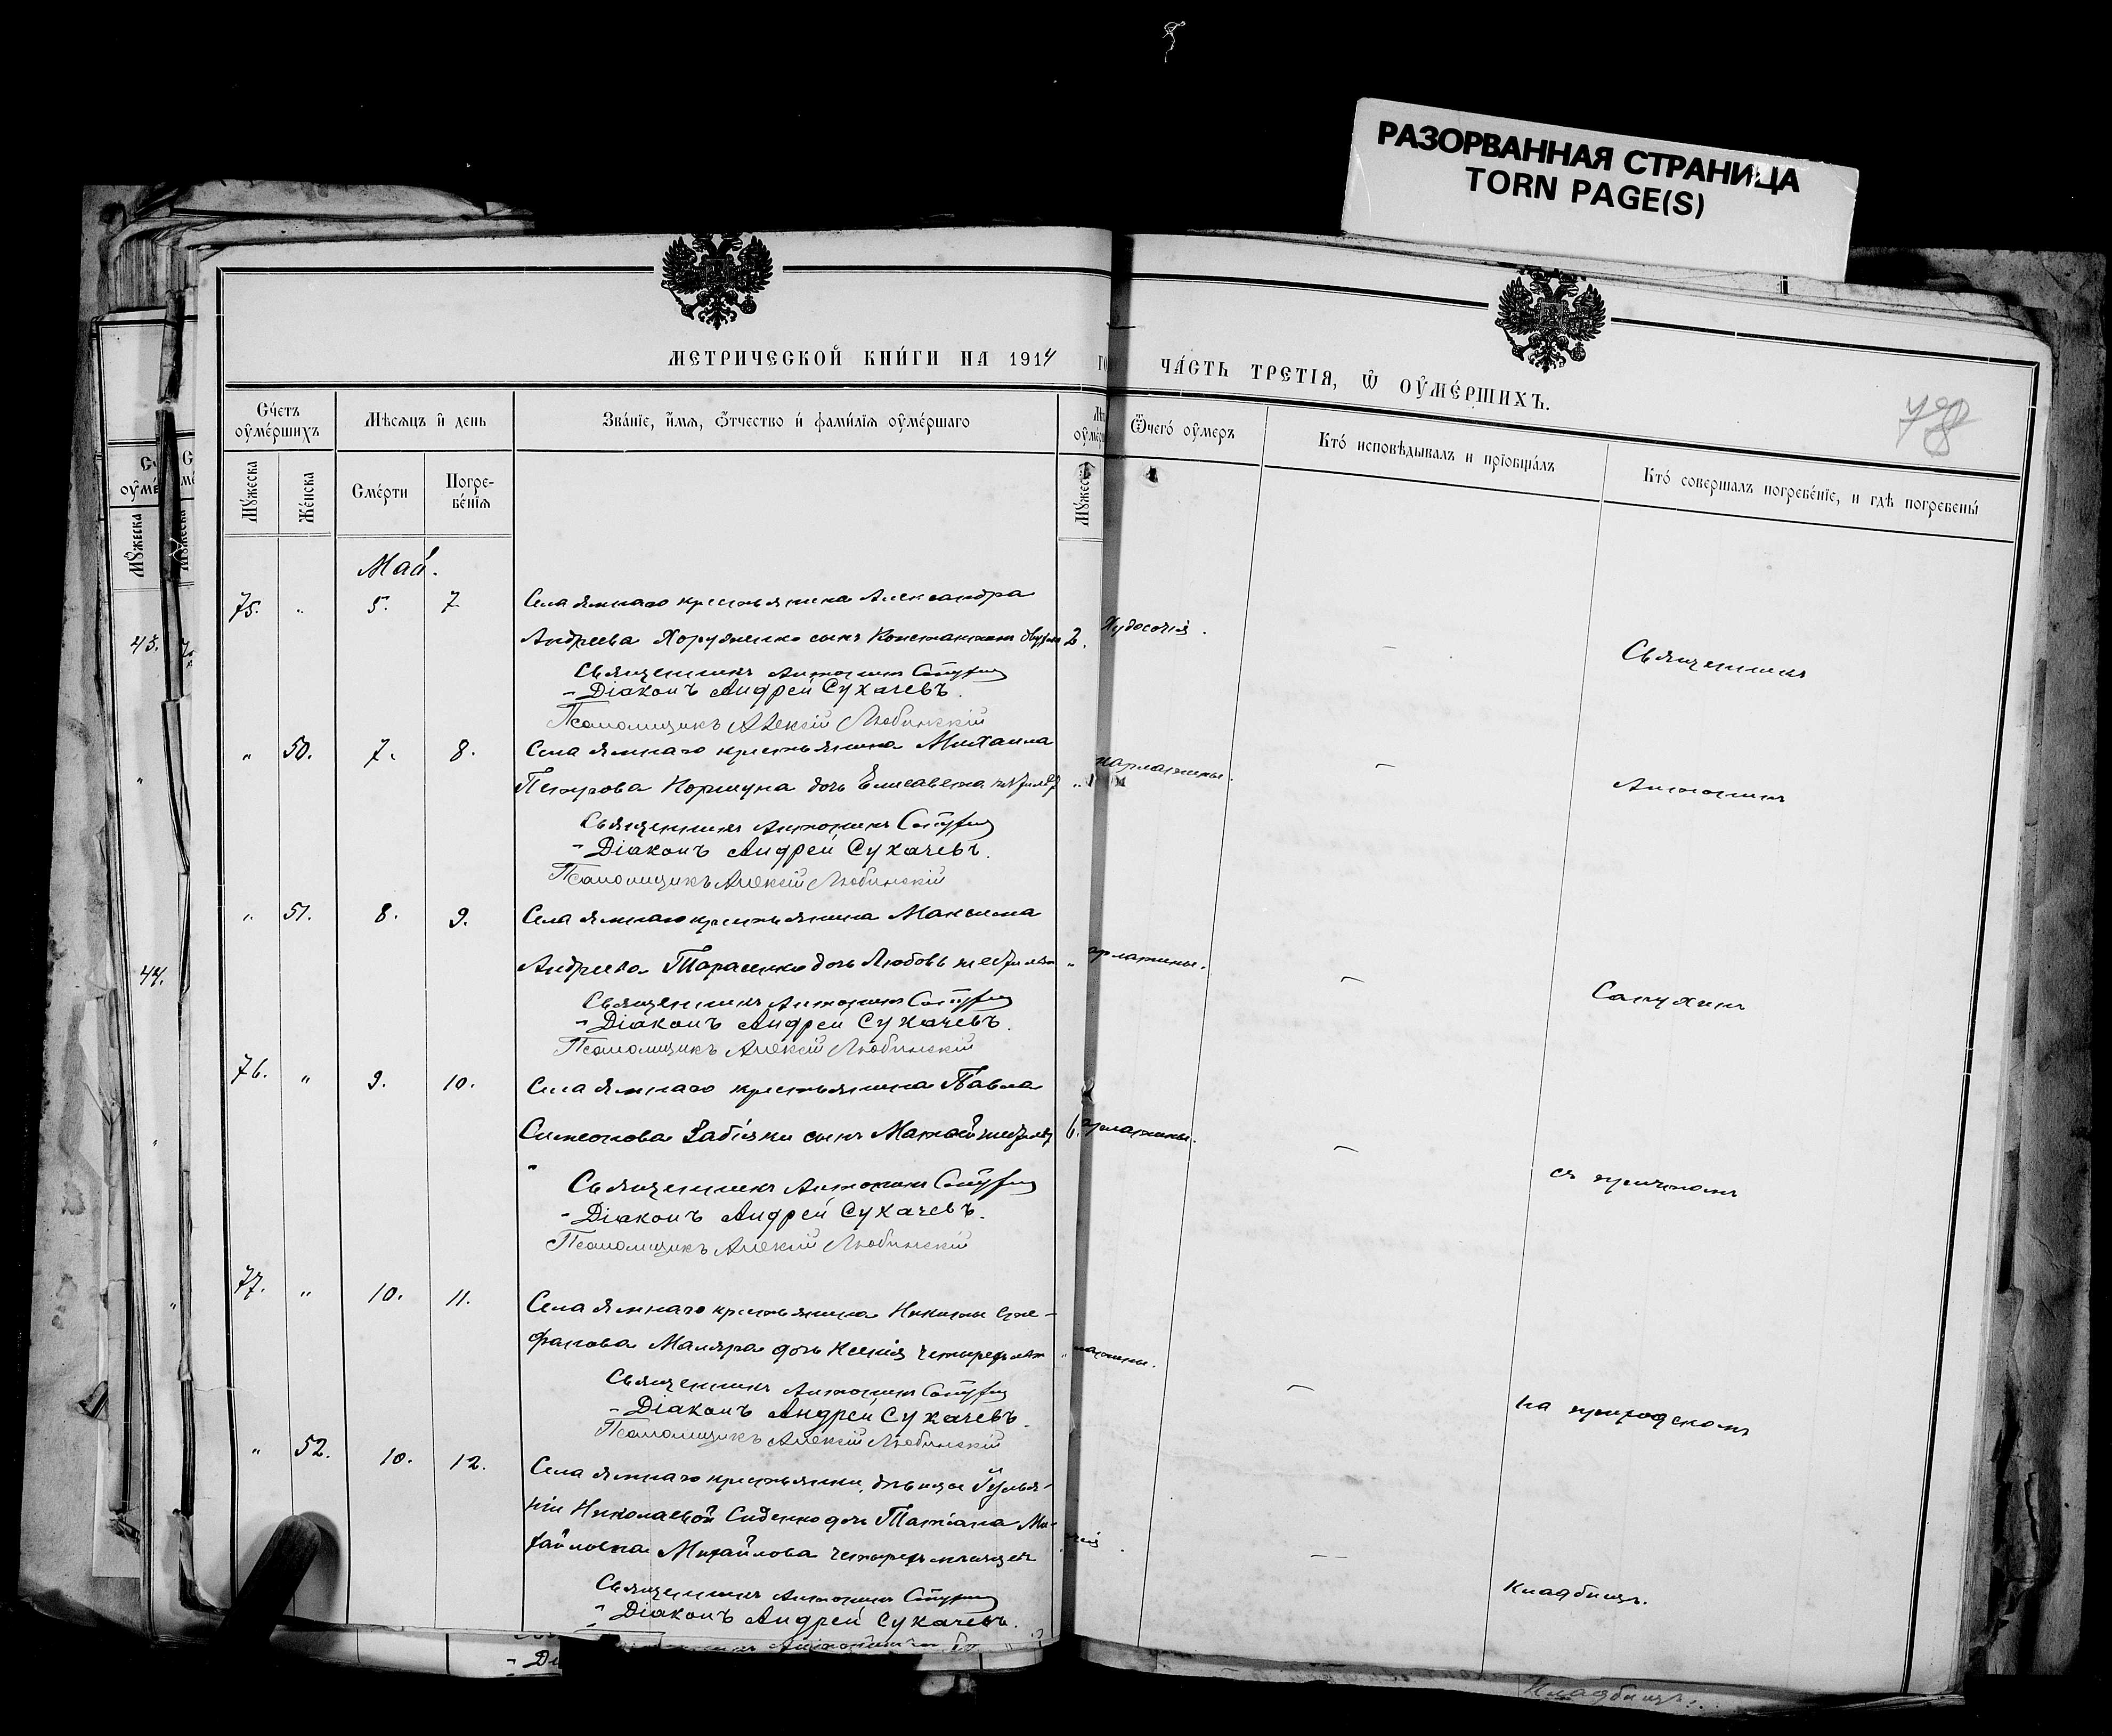 РАЗОРВАННАЯ СТРАНИЦА
TORN PAGE(S)
МЕТРИЧЕСКОЙ КНИ́ГИ НА 1914
ЧА́СТЬ ТРЕТІЯ, Ѿ ОУ҆МЕ́РШИХЪ.
78
Сче́тъ оу҆ме́ршихъ
Мѣсяцъ и҆ день
Зва́ніе, и҆́мя, ѻ҆́тчество и҆ фами́лія оу҆ме́ршаго
Ѿчегѡ̀ оу҆меръ
Кто́ исповѣдывалъ и прїѡбща́лъ
Кто́ совершалъ погребе́ніе, и гдѣ погребены̀
Мꙋ́жеска
Же́нска
Сме́рти
Погре-
бе́нія
Мꙋ́жеска
Май.
75. " 5. 7. Села Ямнаго крестьянина Александра
Андреева Хоруженко сынъ Константинъ 2. Худосочія. —
Священникъ Антонинъ
Діаконъ Андрей Сухачевъ.
Псаломщикъ Алексій Любинскій
Священникъ
" 50. 7. 8. Села Ямнаго крестьянина Михаила
Петрова Коршуна дочь Елисавета " скарлатины. —
Священникъ Антонинъ
Діаконъ Андрей Сухачевъ.
Псаломщикъ Алексій Любинскій
Антонинъ
" 51. 8. 9. Села Ямнаго крестьянина Максима
Андреева Тарасенко дочь Любовь " арлатины. —
Священникъ Антонинъ
Діаконъ Андрей Сухачевъ.
Псаломщикъ Алексій Любинскій
Сапухинъ
76. " 9. 10. Села Ямнаго крестьянина Павла
Симеонова сынъ 6. арлатины. —
Священникъ Антонинъ
Діаконъ Андрей Сухачевъ.
Псаломщикъ Алексій Любинскій
съ причтомъ
77. " 10. 11. Села Ямнаго крестьянина Никиты Сте-
фанова Маляра дочь Ксенія " латины. —
Священникъ Антонинъ
Діаконъ Андрей Сухачевъ.
Псаломщикъ Алексій Любинскій
на приходскомъ
" 52. 10. 12. Села Ямнаго крестьянки, дѣвицы Іулья-
ніи Николаевой Сиденко дочь Татіана Ми-
хайловна Михайлова четырехъ мѣсяцевъ —
Священникъ Антонинъ
Діаконъ Андрей Сухачевъ.
Кладбищѣ.
Кладбищѣ.
43.
44.